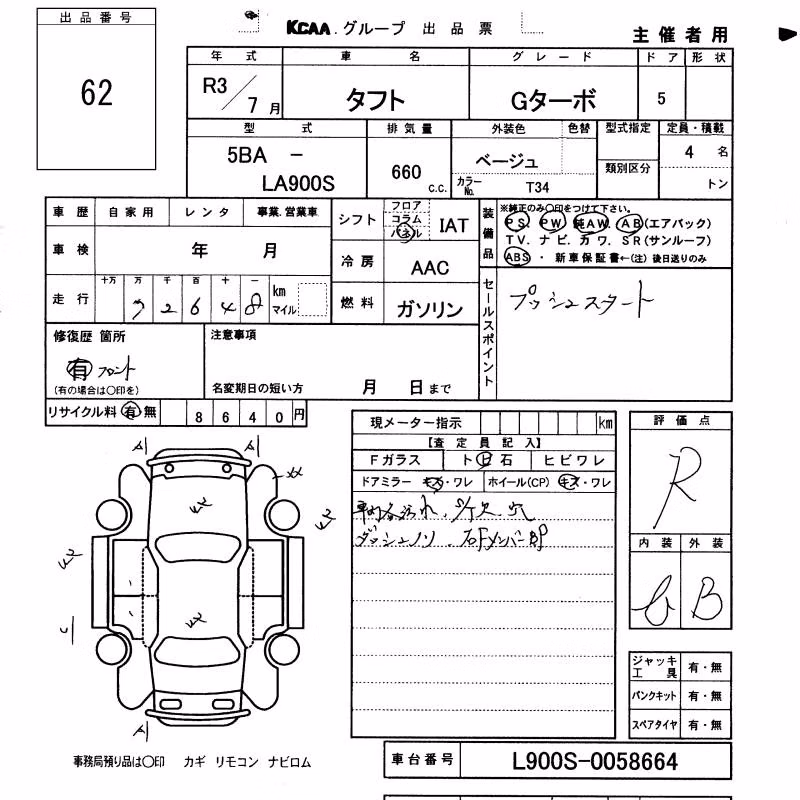 出品番号
62
KCAA.グループ 出品票
主催者用
年式 車名 グレード ドア 形状
R3/7月 タフト Gターボ 5
型式 排気量 外装色 色替 型式指定 定員・積載
5BA - LA900S 660 c.c. ベージュ 類別区分 4 名
カラーNo. T34 トン
車歴 自家用 レンタ 事業.営業車
シフト フロア コラム パネル IAT
装備品 ※純正のみ○印をつけて下さい。
PS. PW. 純AW. AB(エアバック)
TV. ナビ. カワ. SR(サンルーフ)
ABS ・ 新車保証書←(注) 後日送りのみ
車検 年 月
冷房 AAC
走行 十万 万 千 百 十 一
7 2 6 4 8 km マイル
燃料 ガソリン
セールスポイント
プッシュスタート
修復歴 箇所
有 フロント
(有の場合は○印を)
注意事項
名変期日の短い方 月 日まで
リサイクル料 有 無 8 6 4 0 円
現メーター指示 km
【査定員記入】
Fガラス ト日石 ヒビワレ
ドアミラー キズ・ワレ ホイール(CP) キズ・ワレ
車内各汚れ.
ダッシュノリ.
評価点
R
内装 外装
B
A
A
A
ジャッキ工具 有・無
パンクキット 有・無
スペアタイヤ 有・無
事務局預り品は○印 カギ リモコン ナビロム
車台番号 L900S-0058664